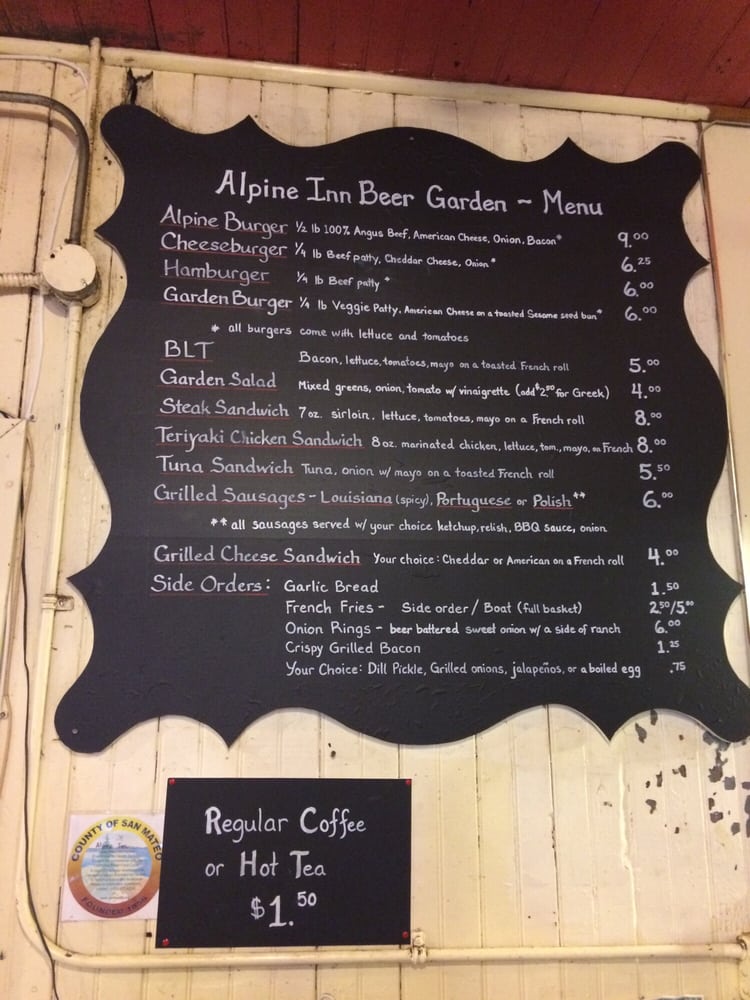 Alpine Inn Beer Garden ~ Menu
Alpine Burger ½ lb 100% Angus Beef, American Cheese, Onion, Bacon* 9.00
Cheeseburger ¼ lb Beef patty, Cheddar Cheese, Onion* 6.25
Hamburger ¼ lb Beef patty * 6.00
Garden Burger ¼ lb Veggie Patty, American Cheese on a toasted Sesame seed bun* 6.00
* all burgers come with lettuce and tomatoes
BLT Bacon, lettuce, tomatoes, mayo on a toasted French roll 5.00
Garden Salad Mixed greens, onion, tomato w/ vinaigrette (add $2.50 for Greek) 4.00
Steak Sandwich 7 oz. sirloin, lettuce, tomatoes, mayo on a French roll 8.00
Teriyaki Chicken Sandwich 8 oz. marinated chicken, lettuce, tom., mayo, on French 8.00
Tuna Sandwich Tuna, onion w/ mayo on a toasted French roll 5.50
Grilled Sausages - Louisiana (spicy), Portuguese or Polish** 6.00
** all sausages served w/ your choice ketchup, relish, BBQ sauce, onion
Grilled Cheese Sandwich Your choice: Cheddar or American on a French roll 4.00
Side Orders: Garlic Bread 1.50
French Fries - Side order / Boat (full basket) 2.50/5.00
Onion Rings - beer battered sweet onion w/ a side of ranch 6.00
Crispy Grilled Bacon 1.25
Your Choice: Dill Pickle, Grilled onions, jalapeños, or a boiled egg .75
Regular Coffee
or Hot Tea
$1.50
COUNTY OF SAN MATEO
Alpine Inn
FOUNDED